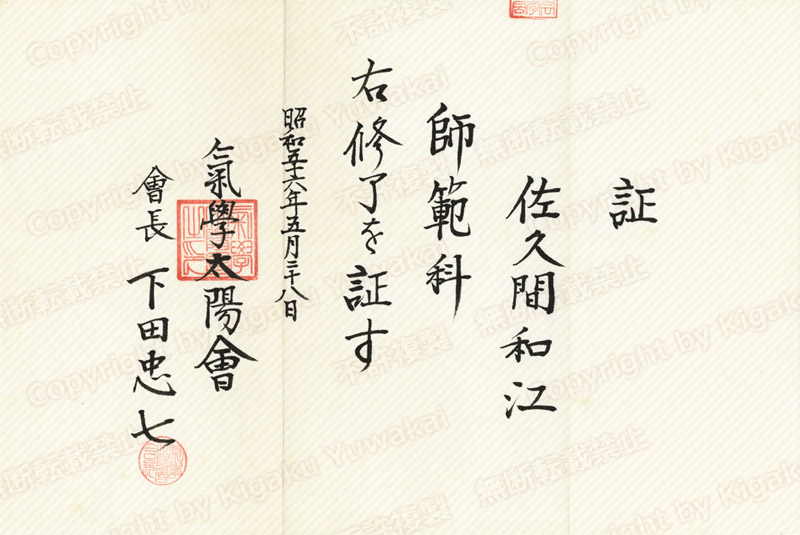 証
佐久間和江
師範科
右修了を証す
昭和五十六年五月二十八日
氣學太陽會
會長 下田忠七
Copyright by Kigaku Yuwakai
無断転載禁止
不許複製